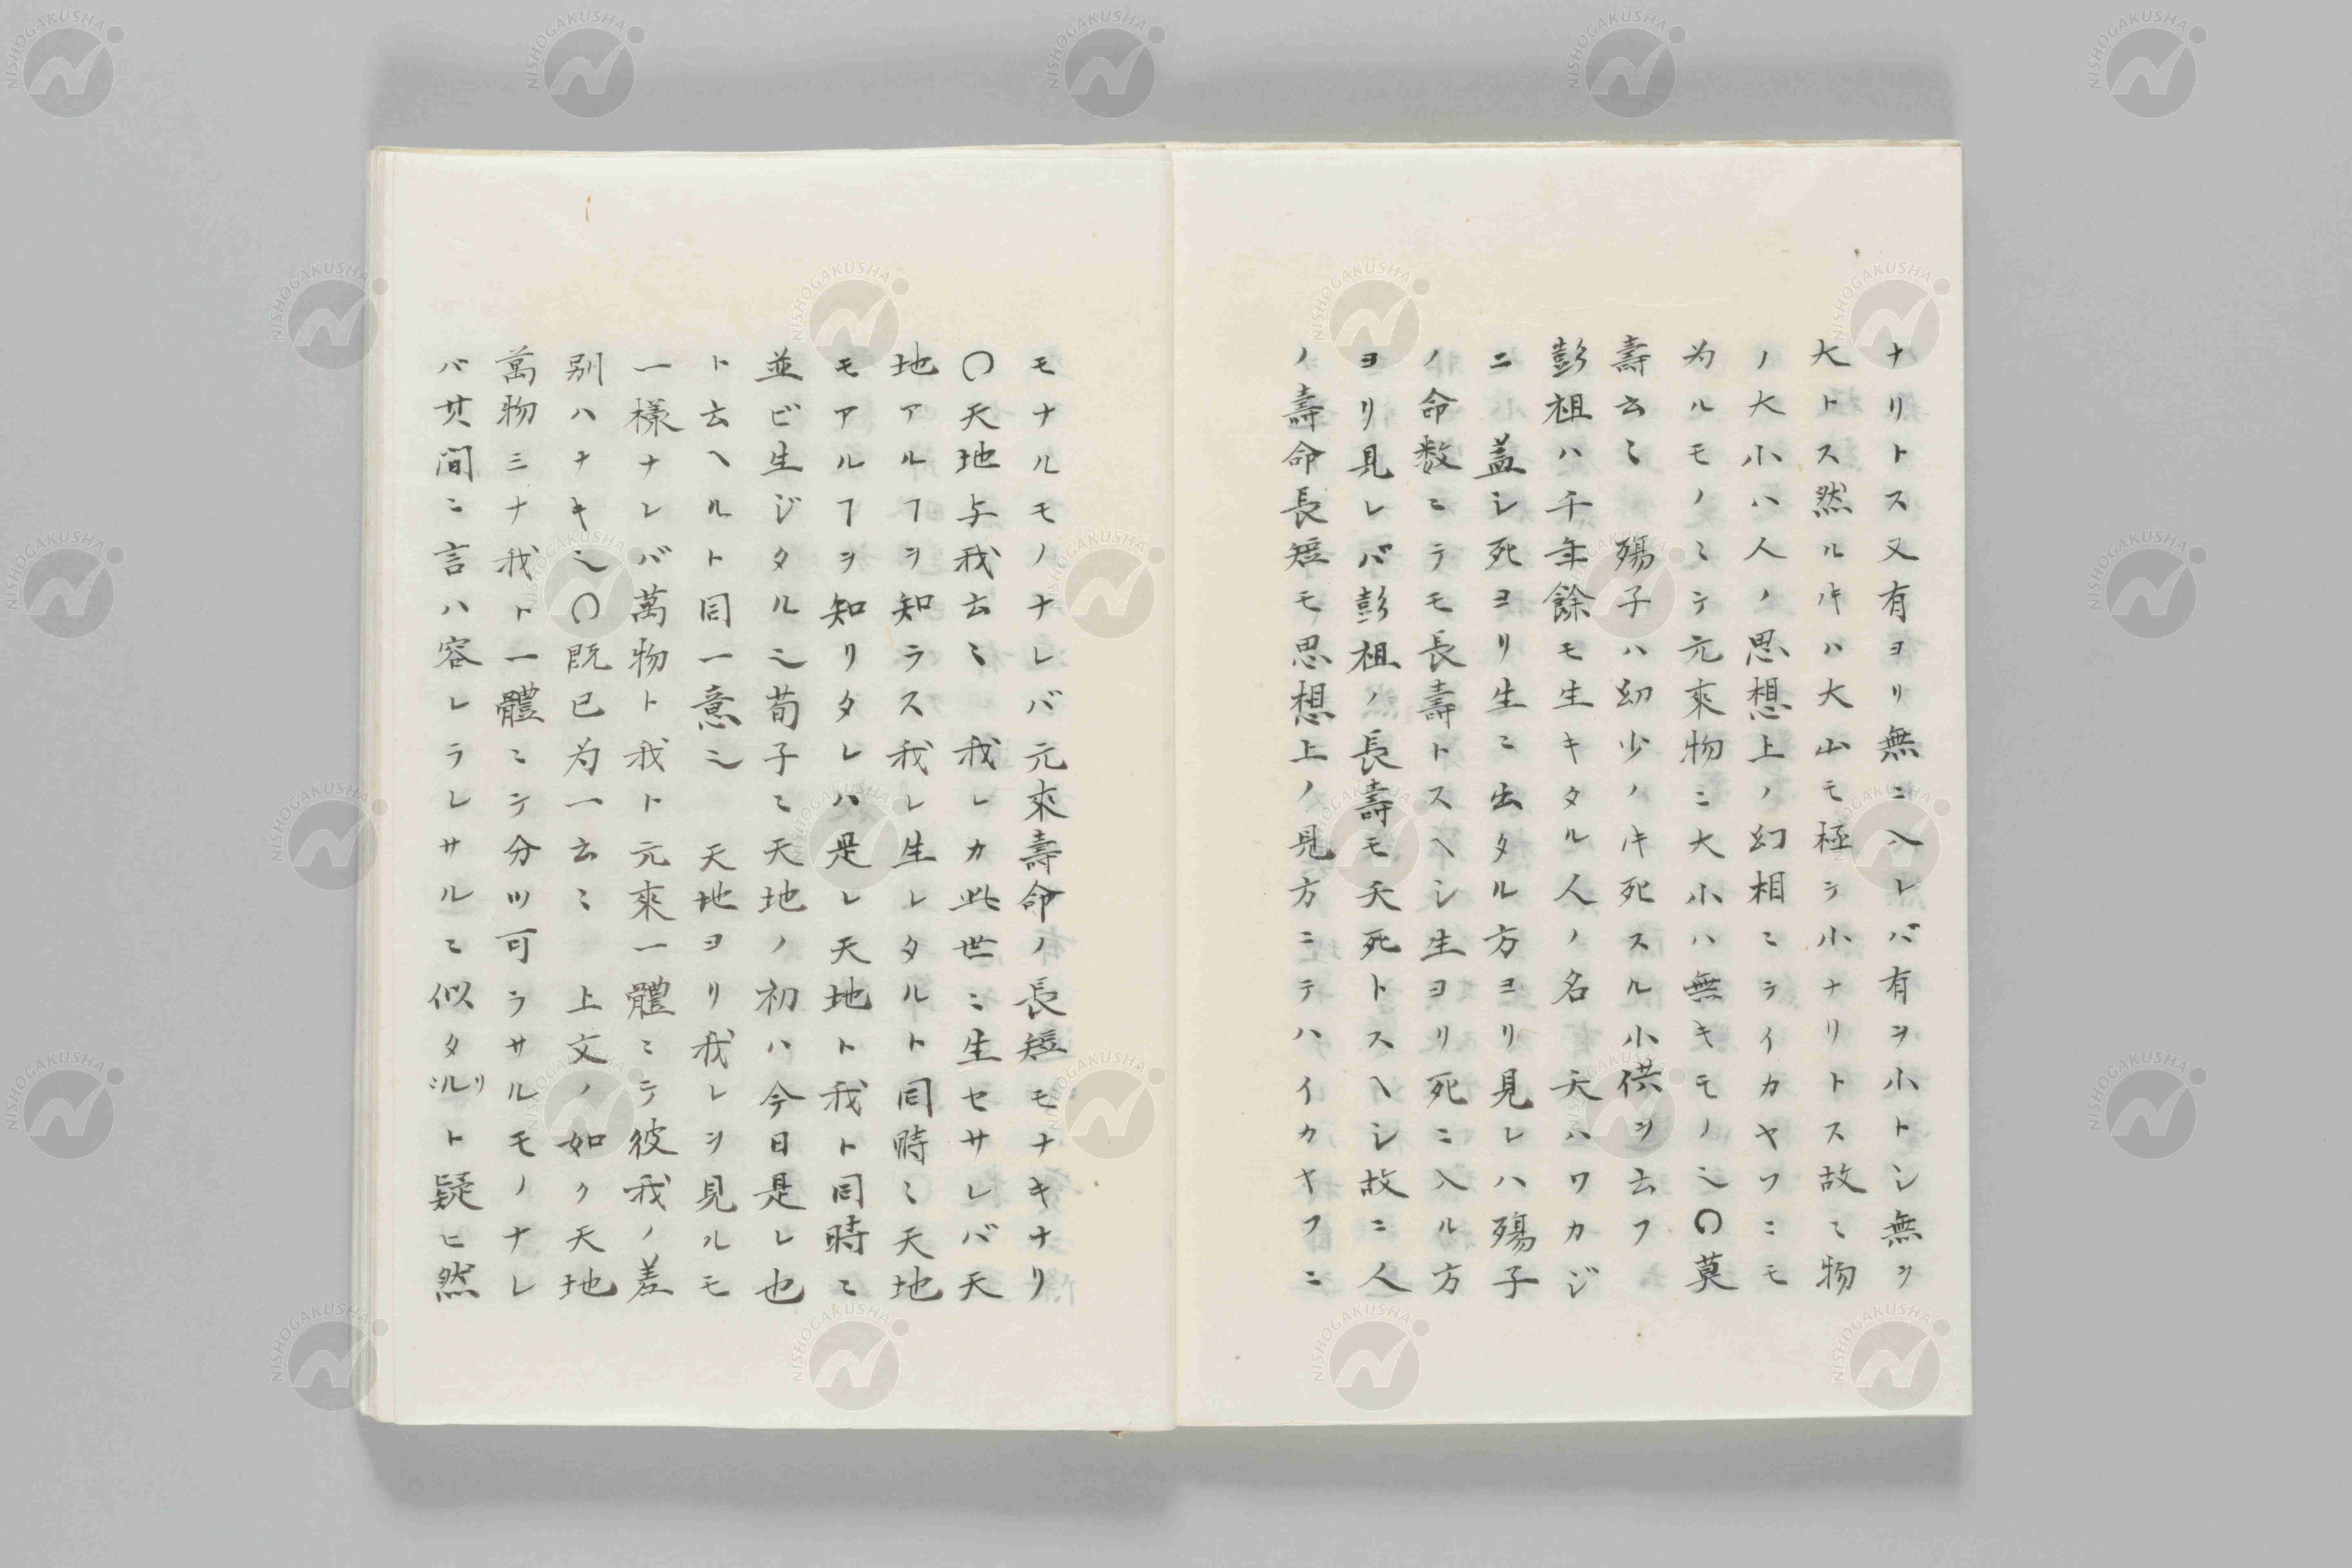 ナリトス又有ヨリ無ニ入レバ有ヲ小トシ無ヲ
大トス然ル𪜈ハ大山モ極テ小ナリトス故ニ物
ノ大小ハ人ノ思想上ノ幻相ニテイカヤフニモ
为ルモノニテ元來物ニ大小ハ無キモノ也〇莫
壽云〻 殤子ハ幼少ノ𪜈死スル小供ヲ云フ
彭祖ハ千年餘モ生キタル人ノ名 夭ハワカジ
ニ 蓋シ死ヨリ生ニ出タル方ヨリ見レハ殤子
ノ命数ニテモ長壽トスヘシ生ヨリ死ニ入ル方
ヨリ見レバ彭祖ノ長壽モ夭死トスヘシ故ニ人
ノ壽命長短モ思想上ノ見方ニテハイカヤフニ
モナルモノナレバ元來壽命ノ長短モナキナリ
〇天地与我云〻 我レカ此世ニ生セサレバ天
地アルヿヲ知ラス我レ生レタルト同時ニ天地
モアルヿヲ知リタレハ是レ天地ト我ト同時ニ
並ビ生ジタル也荀子ニ天地ノ初ハ今日是レ也
ト云ヘルト同一意也 天地ヨリ我レヲ見ルモ
一樣ナレバ萬物ト我ト元來一體ニテ彼我ノ差
别ハナキ也〇既已为一云〻 上文ノ如ク天地
萬物ミナ我ト一體ニテ分ツ可ラサルモノナレ
バ其間ニ言ハ容レラレサルニ似タルリト疑ヒ然
NISHOGAKUSHA